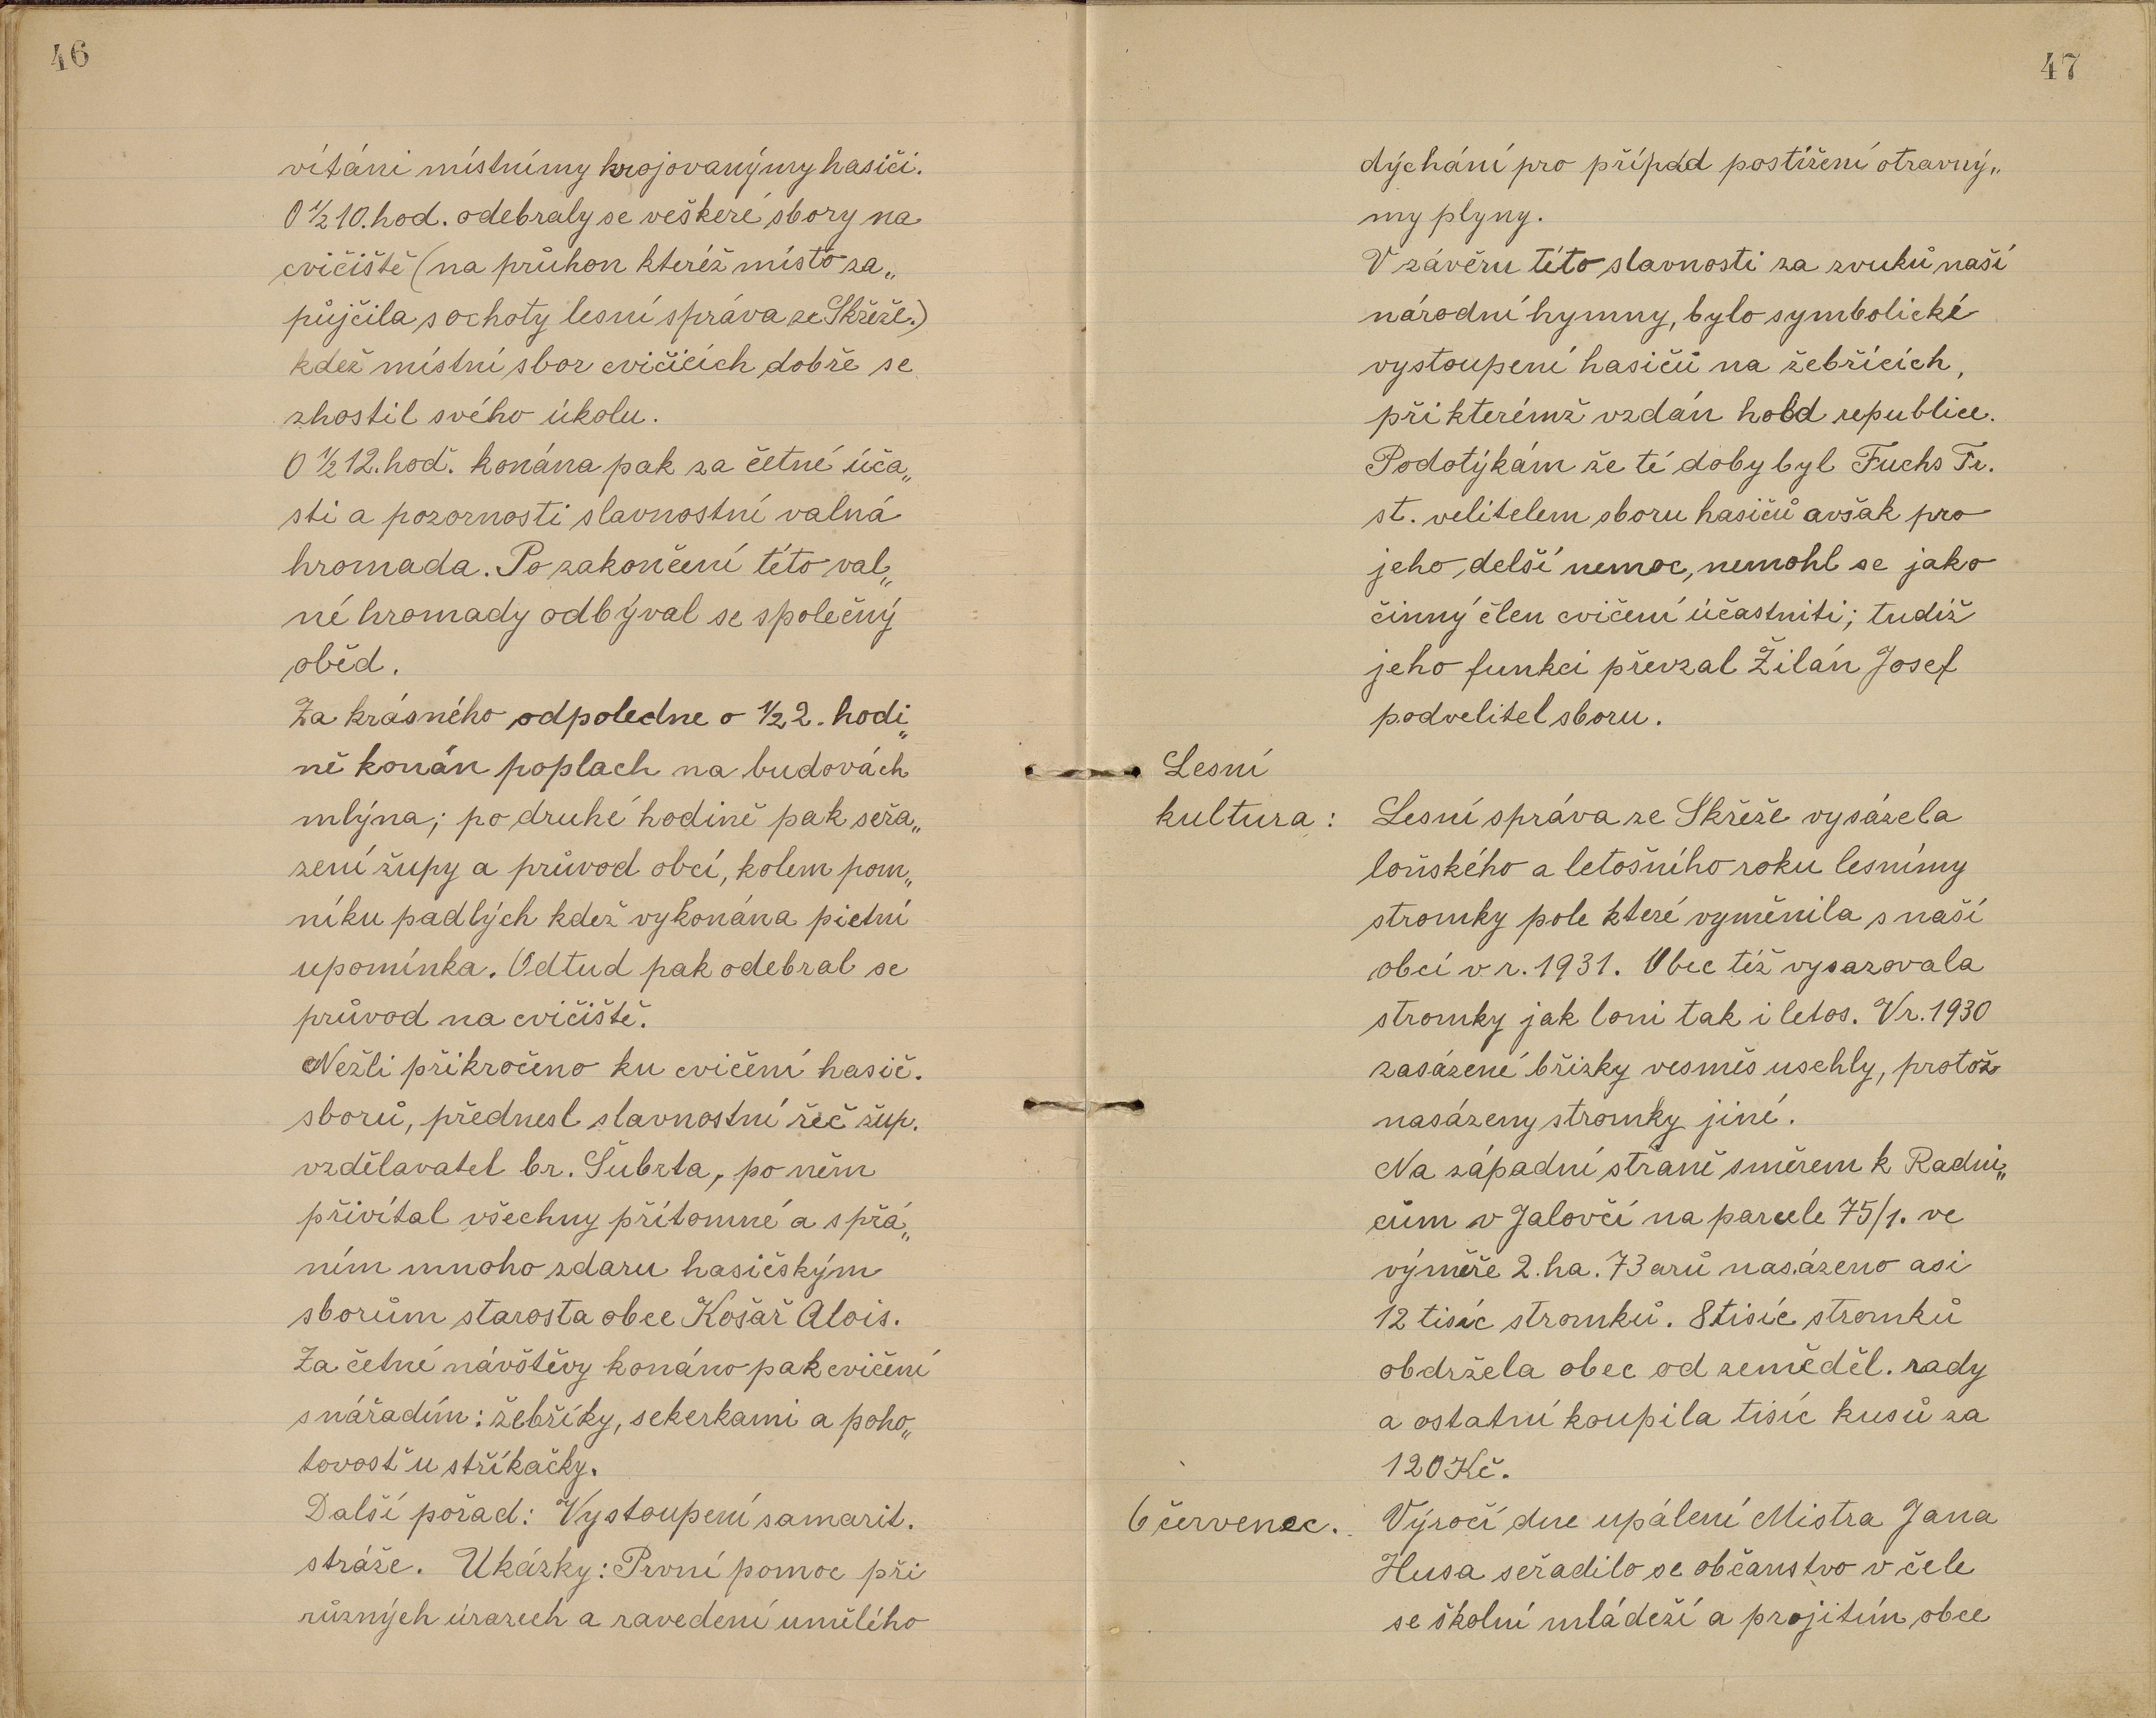 46
vítáni místnímy krojovanýmy hasiči.
O ½10.hod. odebraly se veškeré sbory na
cvičiště (na průhon kteréž místo za„
půjčila s ochoty lesní správa ze Skřeže.)
kdež místní sbor cvičících dobře se
zhostil svého úkolu.
O ½12.hod. konána pak za četné úča„
sti a pozornosti slavnostní valná
hromada. Po zakončení této val„
né hromady odbýval se společný
oběd.
Za krásného odpoledne o ½2. hodi„
ně konán poplach na budovách
mlýna; po druhé hodině pak seřa„
zení župy a průvod obcí, kolem pom„
níku padlých kdež vykonána pietní
upomínka. Odtud pak odebral se
průvod na cvičiště.
Nežli přikročeno ku cvičení hasič.
sborů, přednesl slavnostní řeč žup.
vzdělavatel br. Šubrta, po něm
přivítal všechny přítomné a s přá„
ním mnoho zdaru hasičským
sborům starosta obce Košař Alois.
Za četné návštěvy konáno pak cvičení
s nářadím: žebříky, sekerkami a poho„
tovosť u stříkačky.
Další pořad: Vystoupení samarit.
stráže. Ukázky: První pomoc při
různých úrazech a zavedení umělého
47
dýchání pro případ postižení otravný„
my plyny.
V závěru této slavnosti za zvuků naší
národní hymny, bylo symbolické
vystoupení hasičů na žebřících,
při kterémž vzdán hold republice.
Podotýkám že té doby byl Fuchs Fr.
st. velitelem sboru hasičů avšak pro
jeho delší nemoc, nemohl se jako
činný člen cvičení účastniti; tudíž
jeho funkci převzal Žilán Josef
podvelitel sboru.
Lesní
kultura: Lesní správa ze Skřeže vysázela
loňského a letošního roku lesnímy
stromky pole které vyměnila s naší
obcí v r. 1931. Obec též vysazovala
stromky jak loni tak i letos. V r. 1930
zasázené břízky vesměs uschly, protož
nasázeny stromky jiné.
Na západní straně směrem k Radni„
cům v Jalovčí na parcele 75/1. ve
výměře 2.ha. 73 arů nasázeno asi
12 tisíc stromků. 8 tisíc stromků
obdržela obec od zeměděl. rady
a ostatní koupila tisíc kusů za
120 Kč.
6 červenec. Výročí dne upálení Mistra Jana
Husa seřadilo se občanstvo v čele
se školní mládeží a projitím obce